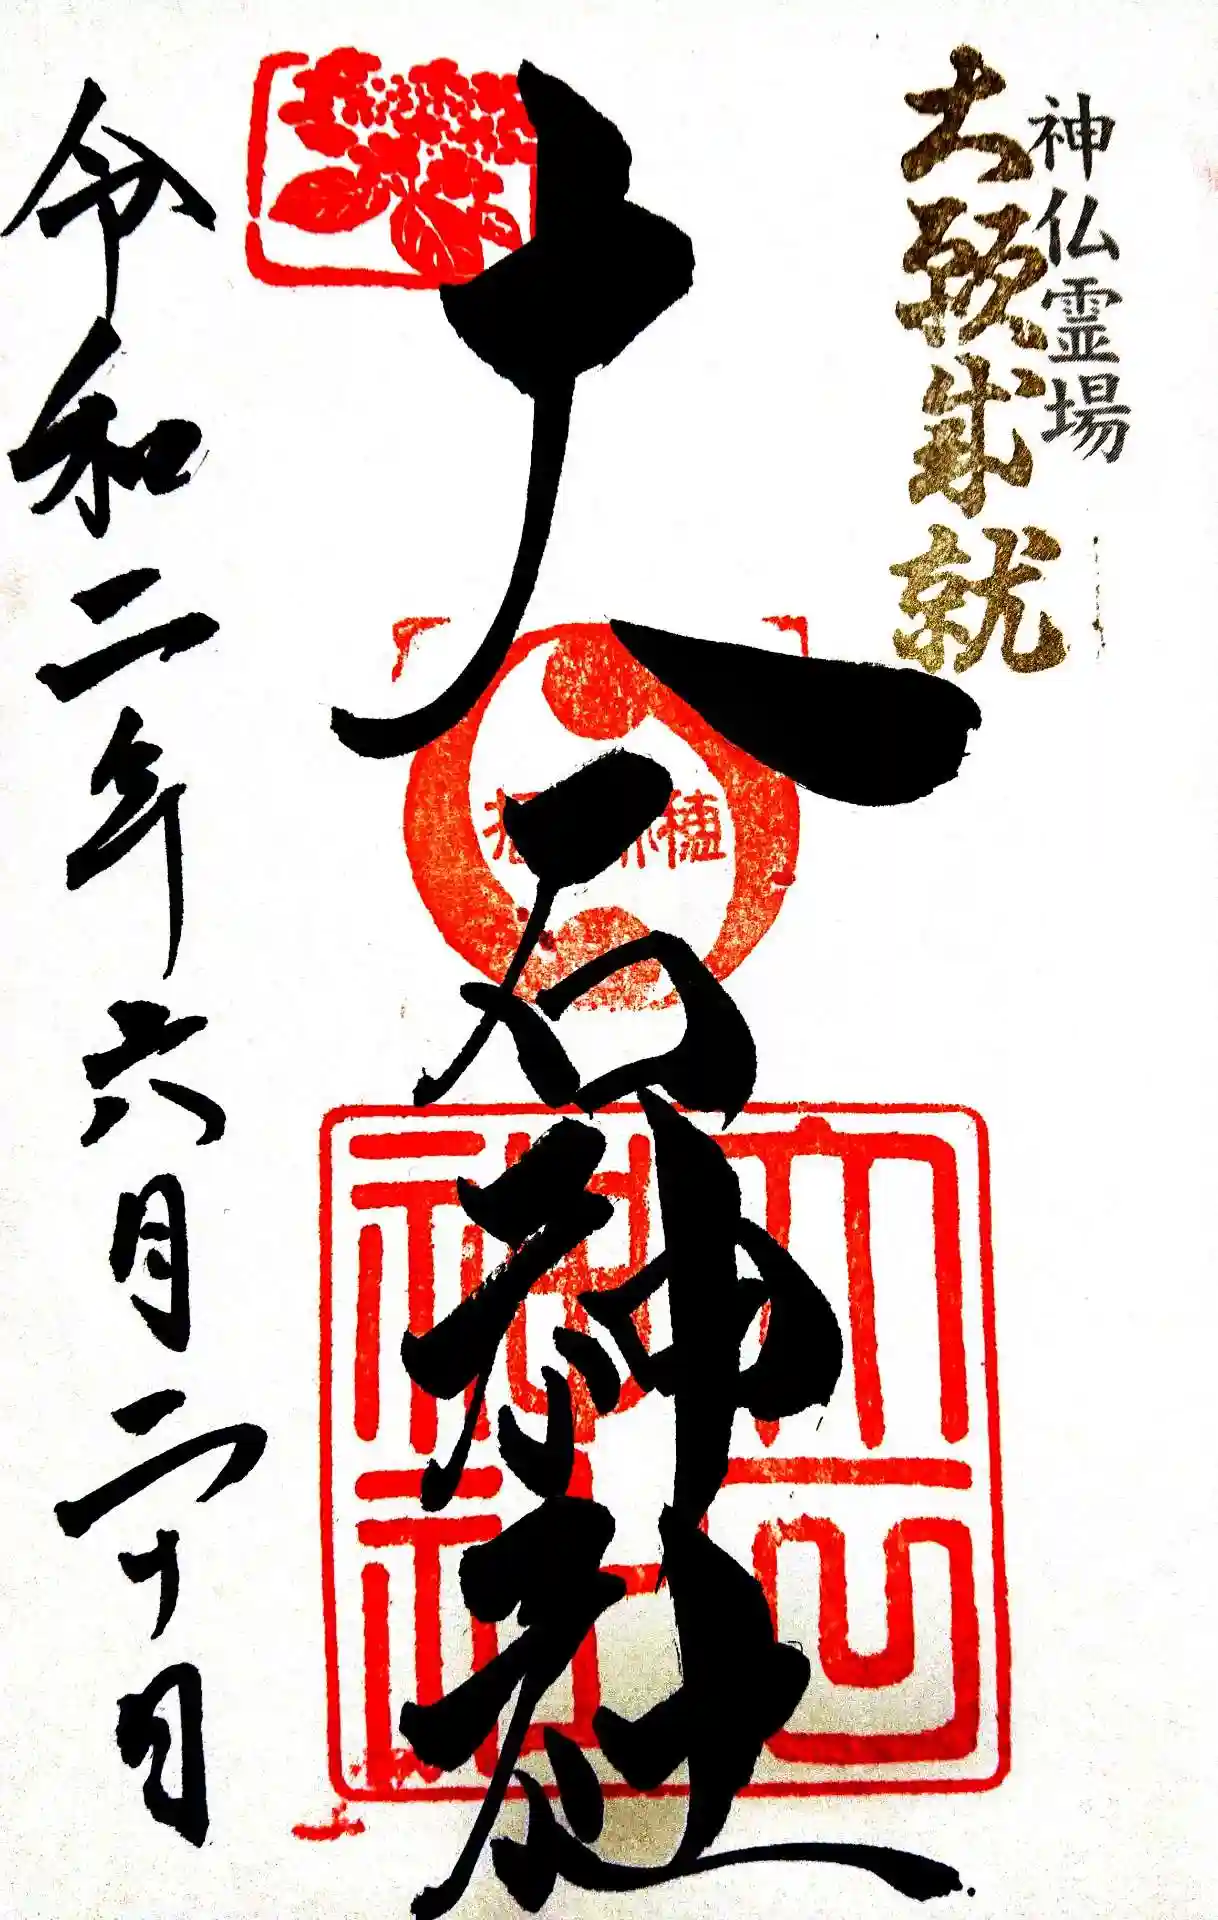 神仏霊場
大願成就
大石神社
穂
大石神社
令和二年六月二十日